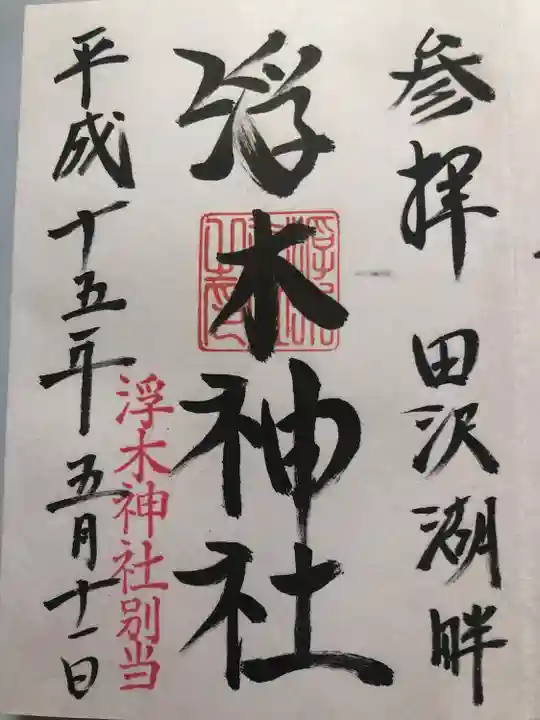 参拝 田沢湖畔
浮木神社
平成十五年 五月十一日
浮木神社別当